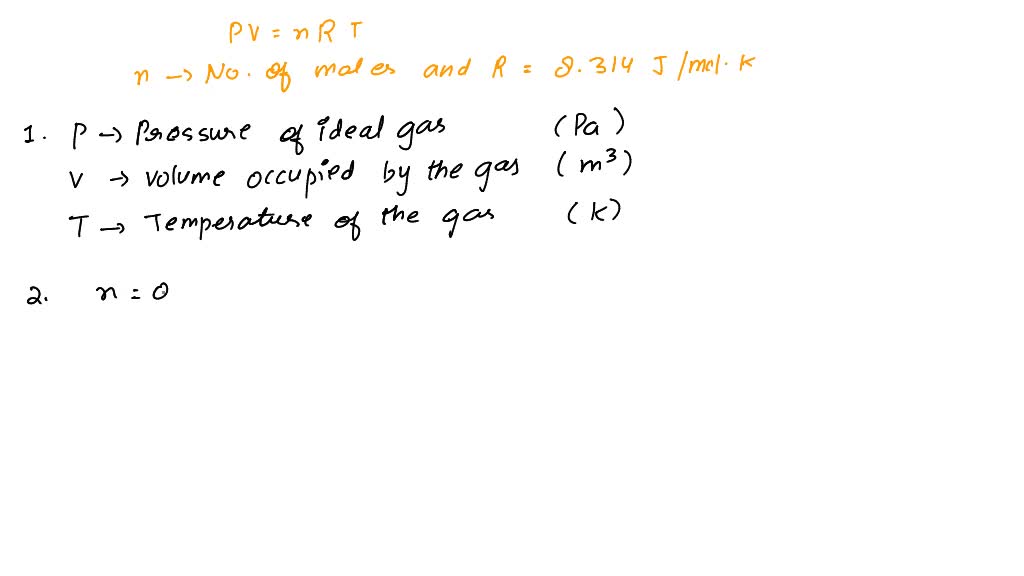 PV = nRT
n → No. of moles and R = 8.314 J/mol.K
1. P → Pressure of ideal gas (Pa)
V → volume occupied by the gas (m³)
T → Temperature of the gas (K)
2. n = 0